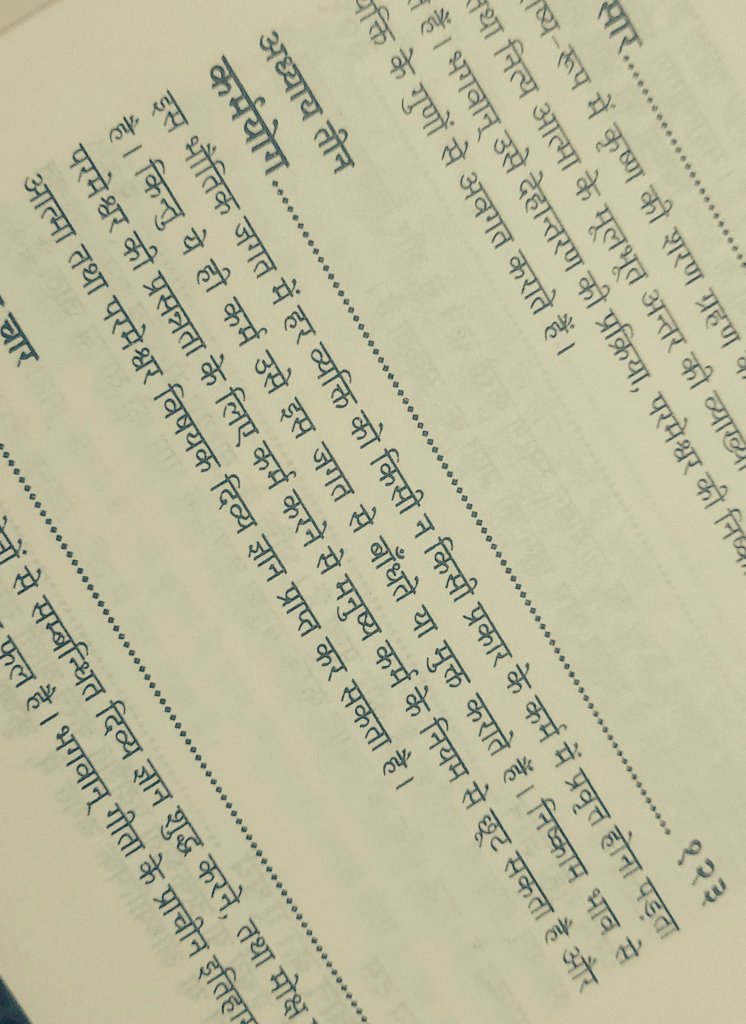 सार
रूप में कृष्ण की शरण ग्रहण
तथा नित्य आत्मा के मूलभूत अन्तर की व्याख्या
हैं। भगवान् उसे देहान्तरण की प्रक्रिया, परमेश्वर की
के गुणों से अवगत कराते हैं।
अध्याय तीन
कर्मयोग १२३
इस भौतिक जगत में हर व्यक्ति को किसी न किसी प्रकार के कर्म में प्रवृत्त होना पड़ता
है। किन्तु ये ही कर्म उसे इस जगत से बाँधते या मुक्त कराते हैं। निष्काम भाव से
परमेश्वर की प्रसन्नता के लिए कर्म करने से मनुष्य कर्म के नियम से छूट सकता है और
आत्मा तथा परमेश्वर विषयक दिव्य ज्ञान प्राप्त कर सकता है।
चार
से सम्बन्धित दिव्य ज्ञान शुद्ध करने, तथा मोक्ष
फल है। भगवान् गीता के प्राचीन इतिहास